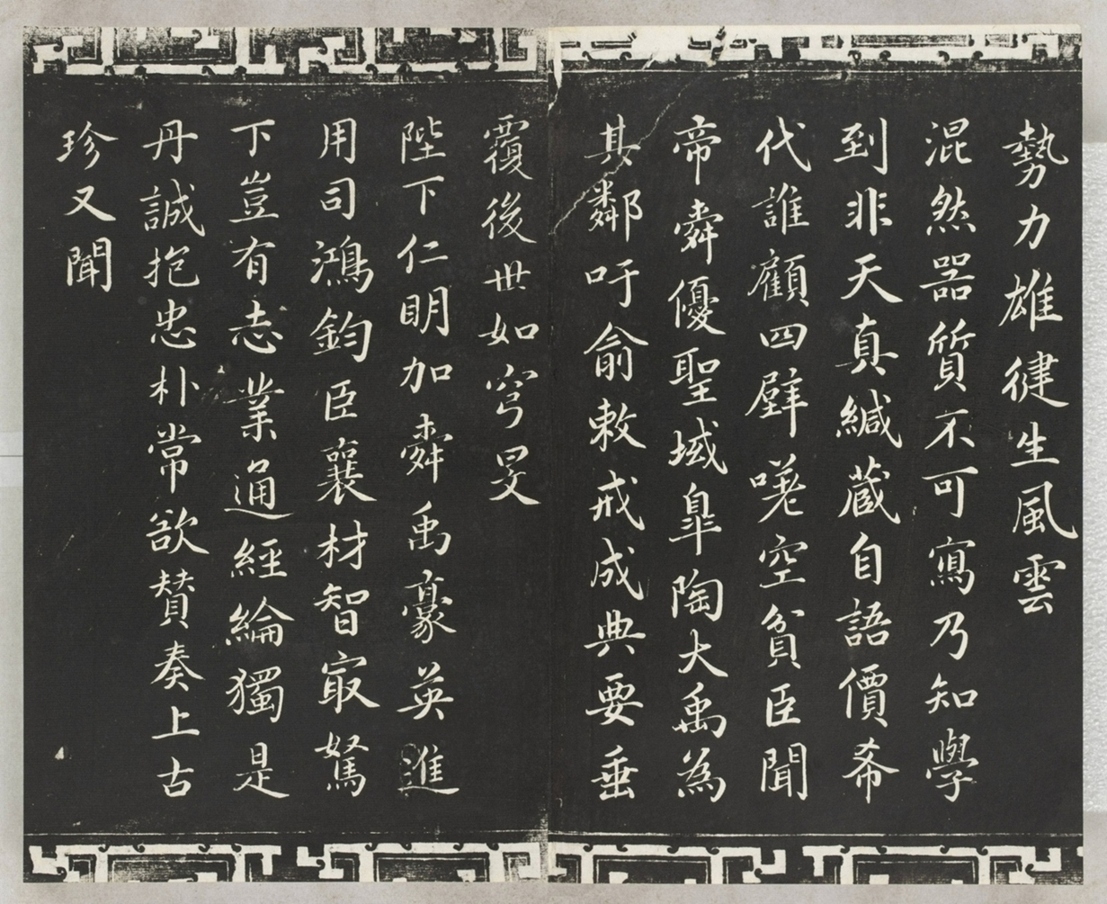 勢力雄健生風雲
混然器質不可寫乃知學
到非天真緘藏自語價希
代誰顧四壁嘆空貧臣聞
帝舜優聖域皐陶大禹為
其鄰吁俞敕戒成典要垂
覆後世如穹旻
陛下仁明加舜禹豪英進
用司鴻鈞臣襄材智最駑
下豈有志業通經綸獨是
丹誠抱忠朴常欲贊奏上古
珍又聞